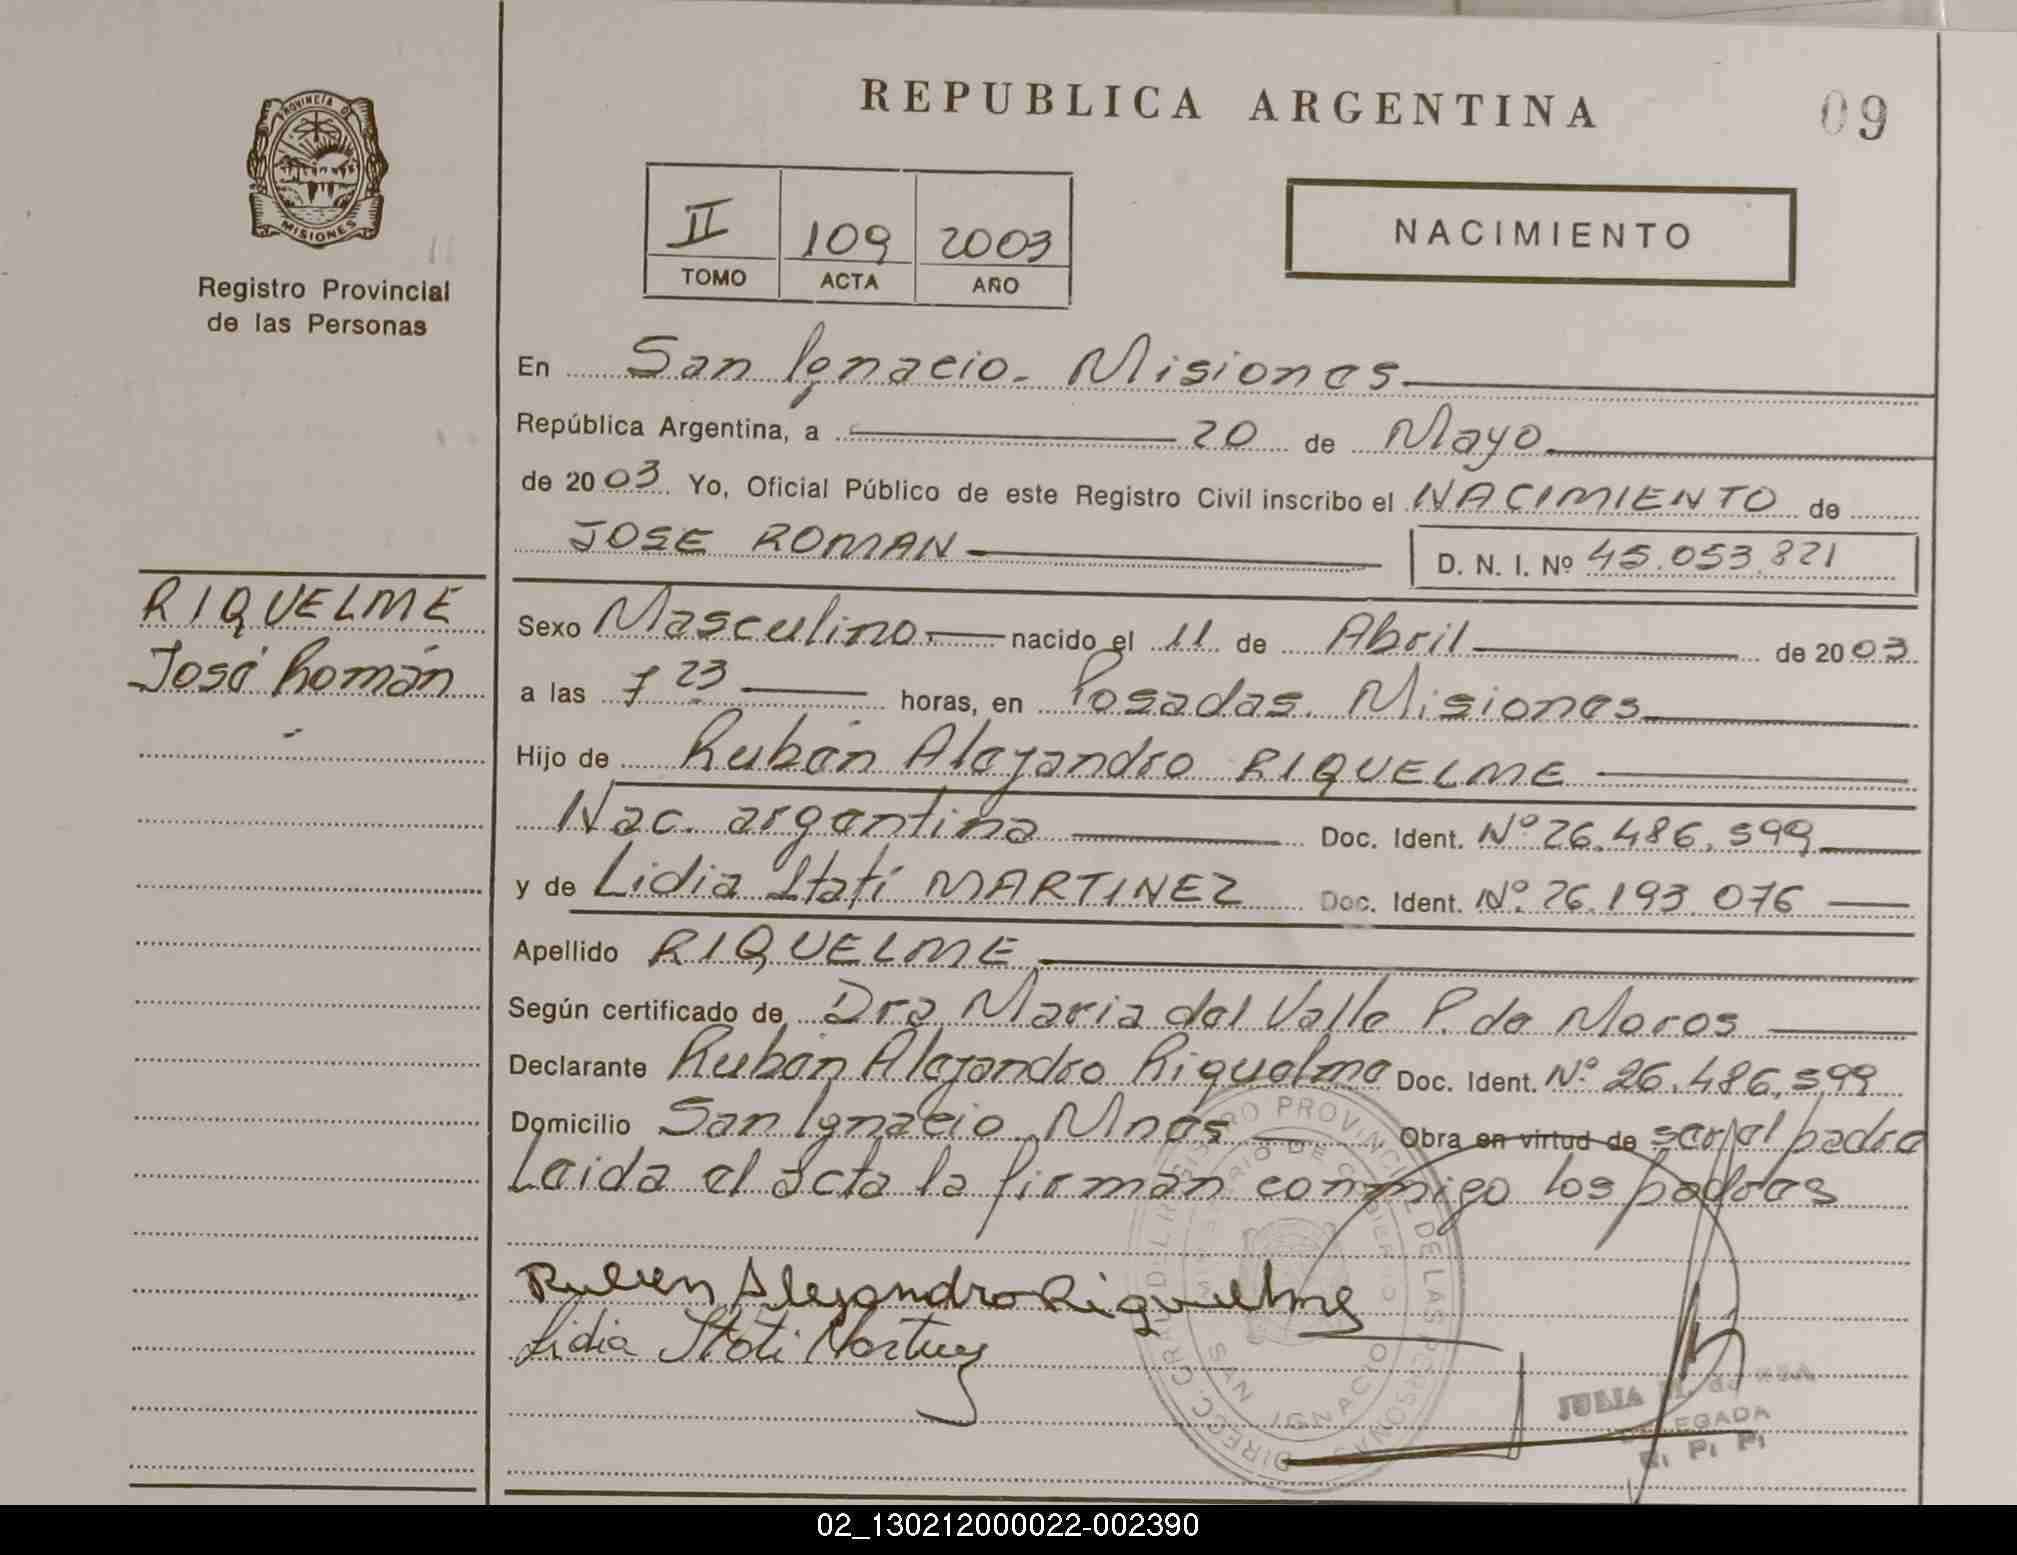 REPUBLICA ARGENTINA
09
PROVINCIA DE
MISIONES
Registro Provincial
de las Personas
II 109 2003
TOMO ACTA AÑO
NACIMIENTO
En San Ignacio. Misiones
República Argentina, a 20 de Mayo
de 2003. Yo, Oficial Público de este Registro Civil inscribo el NACIMIENTO de
JOSE ROMAN D. N. I. Nº 45.053.821
RIQUELME
José Román
Sexo Masculino. nacido el 11 de Abril de 2003
a las 7 23 horas, en Posadas. Misiones
Hijo de Rubén Alejandro RIQUELME
Nac. argentina Doc. Ident. Nº 26.486.599
y de Lidia Itatí MARTINEZ Doc. Ident. Nº 26.193.076
Apellido RIQUELME
Según certificado de Dra Maria del Valle P. de Moros
Declarante Rubén Alejandro Riquelme Doc. Ident. Nº 26.486.599
Domicilio San Ignacio Mnes Obra en virtud de ser el padre
Leida el acta la firman conmigo los padres
Ruben Alejandro Riquelme
Lidia Itati Martinez
DIRECC. GRAL. DEL REGISTRO PROVINCIAL DE LAS PERSONAS
MINISTERIO DE GOBIERNO
SAN IGNACIO
JULIA
DELEGADA
R. P. P.
02_130212000022-002390